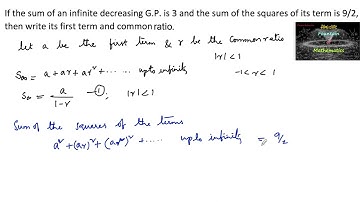 If the sum of an infinite decreasing G.P. is 3 and the sum of the squares of its term is 9/2,
then write its first term and common ratio.
Let a be the first term & r be the common ratio
|r| < 1
S∞ = a + ar + ar² + ...... upto infinity
-1 < r < 1
S∞ = a/(1-r) — ①, |r| < 1
Sum of the squares of the terms
a² + (ar)² + (ar²)² + ..... upto infinity = 9/2
Mathematics